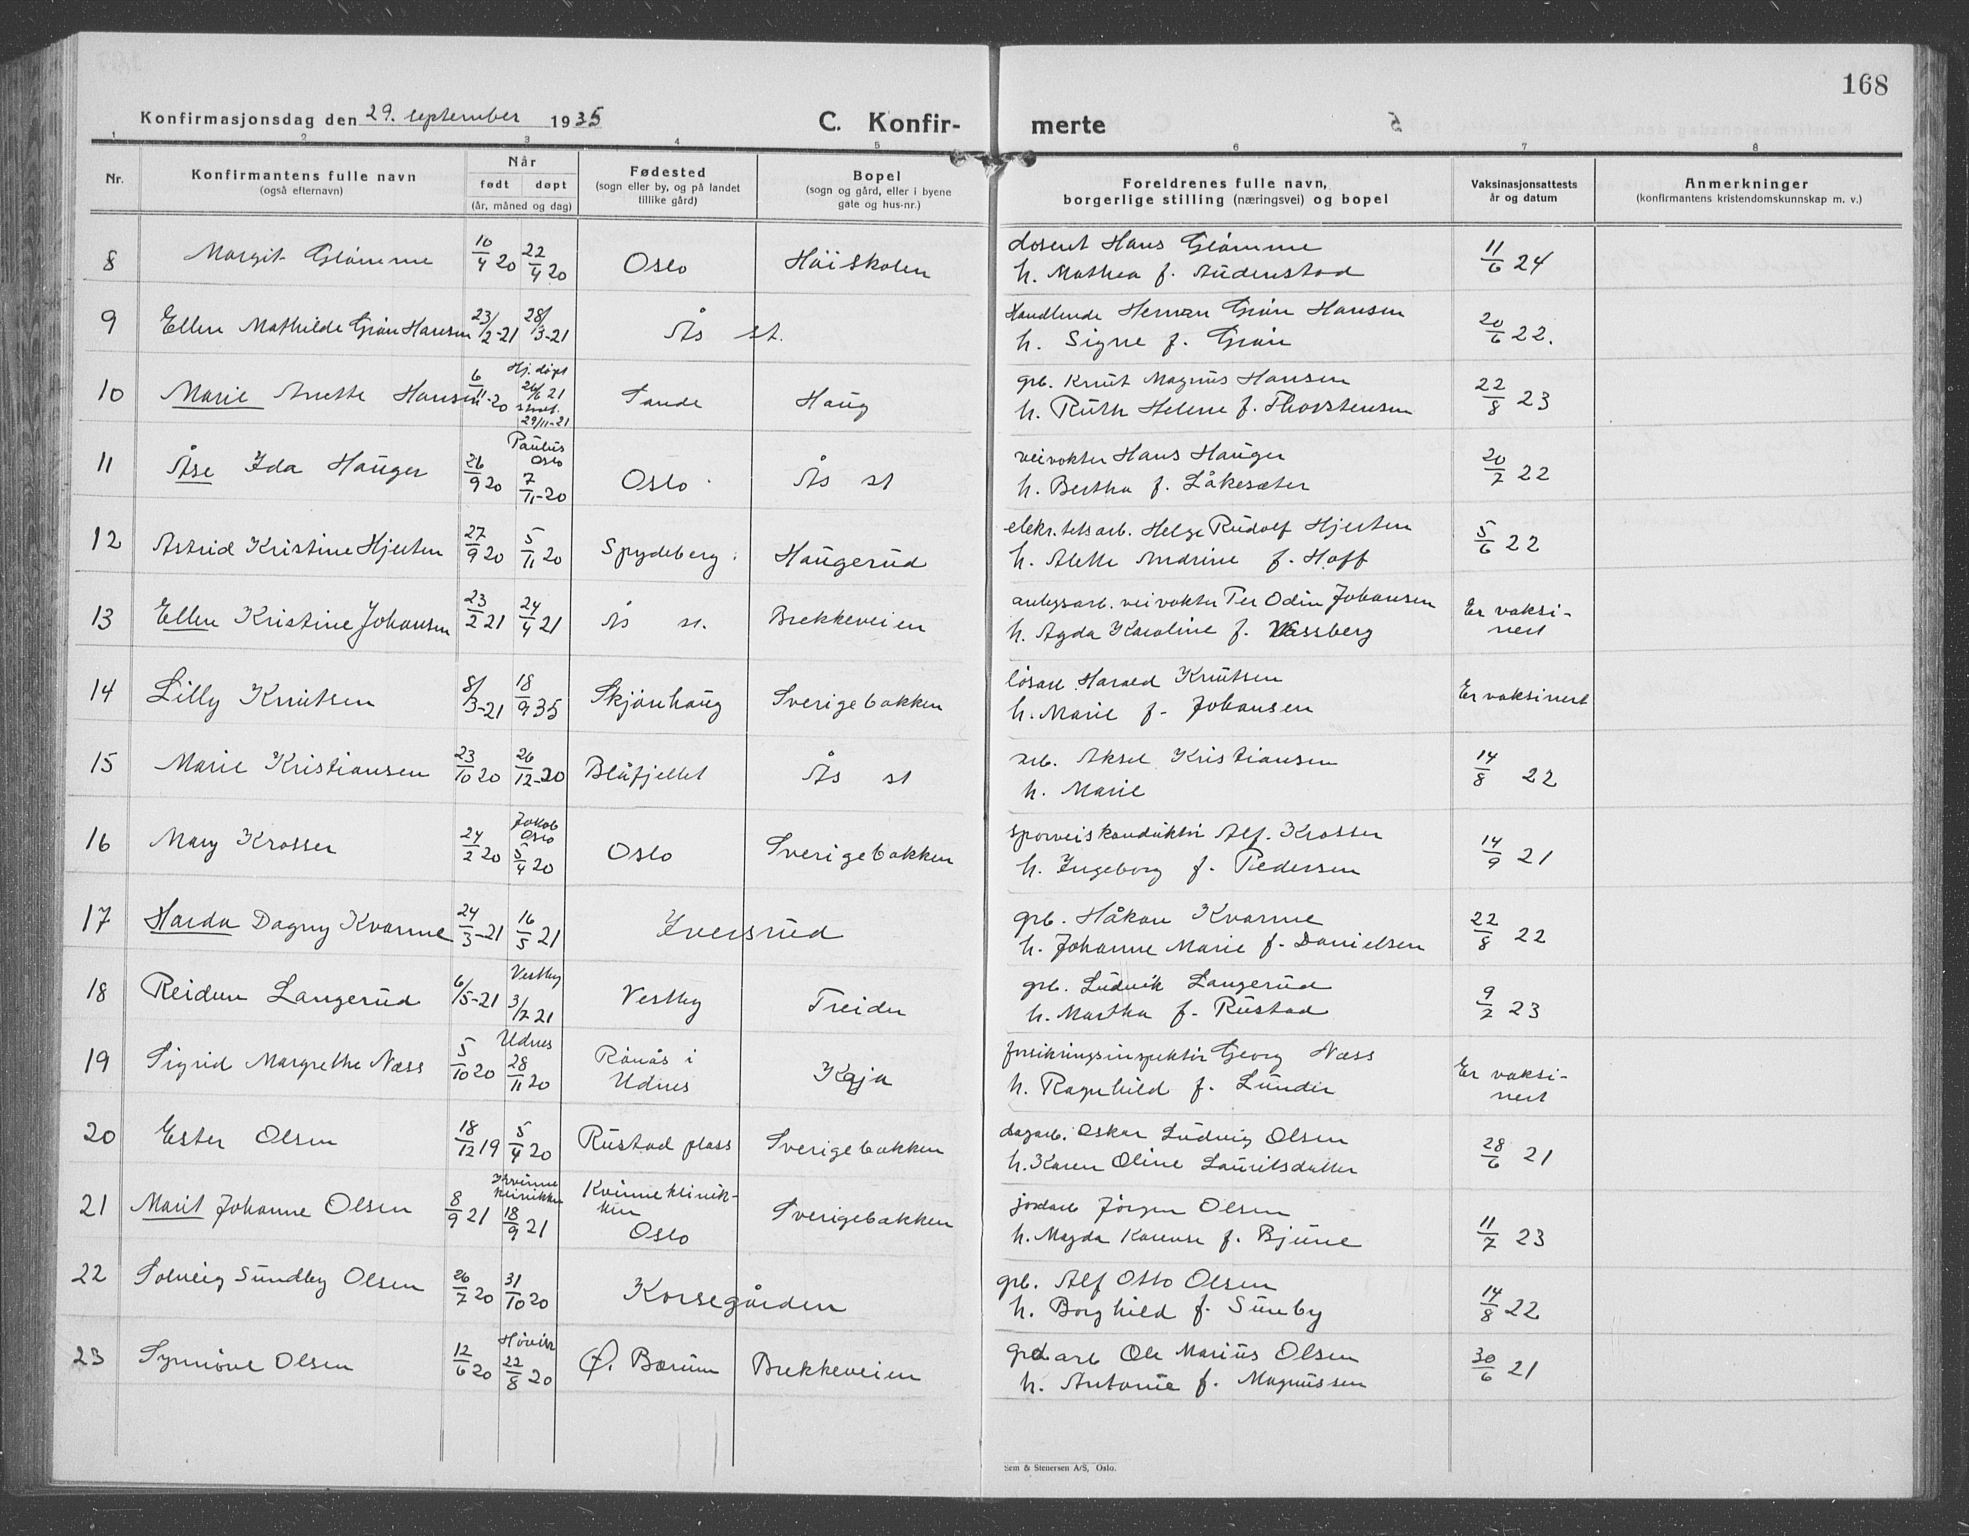 168
Konfirmasjonsdag den 29. september 1935
C. Konfir-
merte
1 2 3 4 5 6 7 8
Nr.
Konfirmantens fulle navn
(også efternavn)
Når
født døpt
(år, måned og dag)
Fødested
(sogn eller by, og på landet
tillike gård)
Bopel
(sogn og gård, eller i byene
gate og hus-nr.)
Foreldrenes fulle navn,
borgerlige stilling (næringsvei) og bopel
Vaksinasjonsattests
år og datum
Anmerkninger
(konfirmantens kristendomskunnskap m. v.)
8 Margit Glømme 10/4 20 22/4 20 Oslo Høiskolen dosent Hans Glømme 11/6 24
h. Mathea f. Audenstad
9 Ellen Mathilde Grøn Hansen 23/2-21 28/3-21 Ås st. Handlende Herman Grøn Hansen 20/6 22.
h. Signe f. Grøn
10 Marie Anette Hansen 6/11-20 Hj. døpt 26/6 21 stadf. 29/11-21 Sande Haug grb. Knut Magnus Hansen 22/8 23
h. Ruth Helene f. Thorstensen
11 Åse Ida Hauger 26/9 20 Paulus Oslo 7/11-20 Oslo Ås st veivokter Hans Hauger 20/7 22
h. Bertha f. Låkesæter
12 Astrid Kristine Hjerten 27/9 20 5/11 20 Spydeberg Haugerud elektr. tetsarb. Helge Rudolf Hjerten 5/6 22
h. Alette Andrine f. Hoff
13 Ellen Kristine Johansen 23/2 21 24/4 21 Ås st. Brekkeveien anlegsarb. veivokter Per Odin Johansen Er vaksi-
h. Agda Karoline f. Wassberg nert
14 Lilly Knutsen 8/3-21 18/9 35 Skjønhaug Sverigebakken løsarb. Harald Knutsen Er vaksinert
h. Marie f. Johansen
15 Marie Kristiansen 23/10 20 26/12-20 Blåfjellet Ås st arb. Aksel Kristiansen 14/8 22
h. Marie
16 Mary Krosser 24/2 20 Jakob Oslo 5/4 20 Oslo Sverigebakken sporveiskonduktør Alf. Krosser 14/9 21
h. Ingeborg f. Pedersen
17 Harda Dagny Kvarme 24/3-21 16/5 21 Iversrud grb. Håkon Kvarme 22/8 22
h. Johanne Marie f. Danielsen
18 Reidun Langerud 6/5-21 Vestby 3/7 21 Vestby Treider grb. Ludvik Langerud 9/7 23
h. Martha f. Rustad
19 Sigrid Margrethe Næss 5/10 20 Udnes 28/11 20 Rånås i Udnes Kaja forsikringsinspektør Georg Næss Er vaksi-
h. Ragnhild f. Lunder nert
20 Ester Olsen 18/12 19 5/4 20 Rustad plass Sverigebakken dagarb. Oskar Ludvig Olsen 28/6 21
h. Karen Oline Lauritsdatter
21 Marit Johanne Olsen 8/9 21 Kvinne klinikken 18/9 21 Kvinneklinik-ken Oslo Sverigebakken jordarb Jørgen Olsen 11/7 23
h. Magda Karense f. Bjune
22 Solveig Sundby Olsen 26/7 20 31/10 20 Korsegården grb. Alf Otto Olsen 14/8 22
h. Borghild f. Sundby
23 Synnøve Olsen 12/6 20 Høvik 22/8 20 Ø. Bærum Brekkeveien arb Ole Marius Olsen 30/6 21
h. Antonie f. Magnussen
Sem & Stenersen A/S, Oslo.